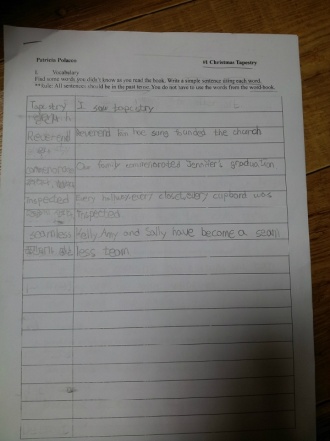 Patricia Polacco #1 Christmas Tapestry
1. Vocabulary
Find some words you didn't know as you read the book. Write a simple sentence using each word.
**Rule: All sentences should be in the past tense. You do not have to use the words from the word book.
Tapestry I saw tapistry
Reverend Reverend him hoc sung founded the church
commemorate Our family commemorated Jennifer's graduation
Inspected Every hallway every closet, every cupboard was
inspected
seamless Kelly, Amy and Sally have become a seam
less team